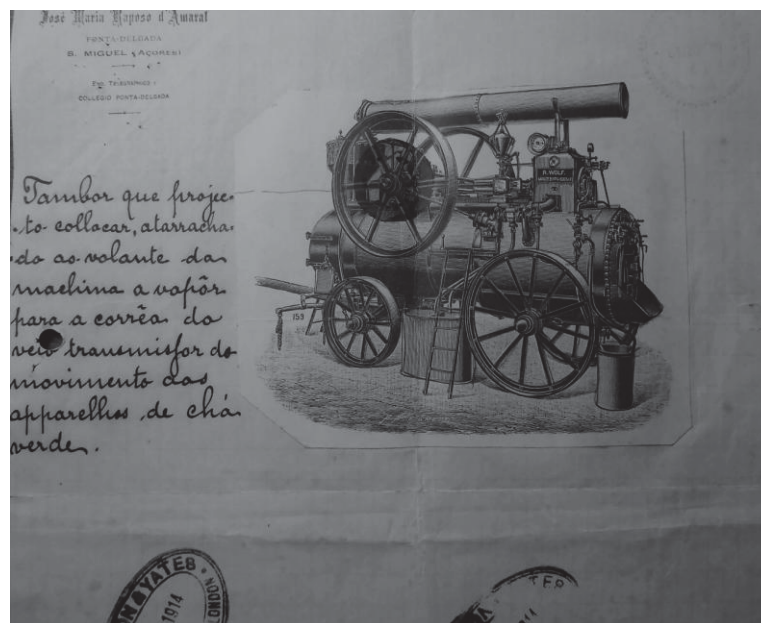 José Maria Raposo d'Amaral
PONTA-DELGADA
S. MIGUEL (AÇORES)
END. TELEGRAPHICO:
COLLEGIO PONTA-DELGADA
R. WOLF
153
Tambor que projec-
-to collocar, atarracha-
do ao volante da
machina a vapôr
para a corrêa do
veio transmissor do
movimento aos
apparelhos de chá
verde.
N & YATES • LONDON
1914